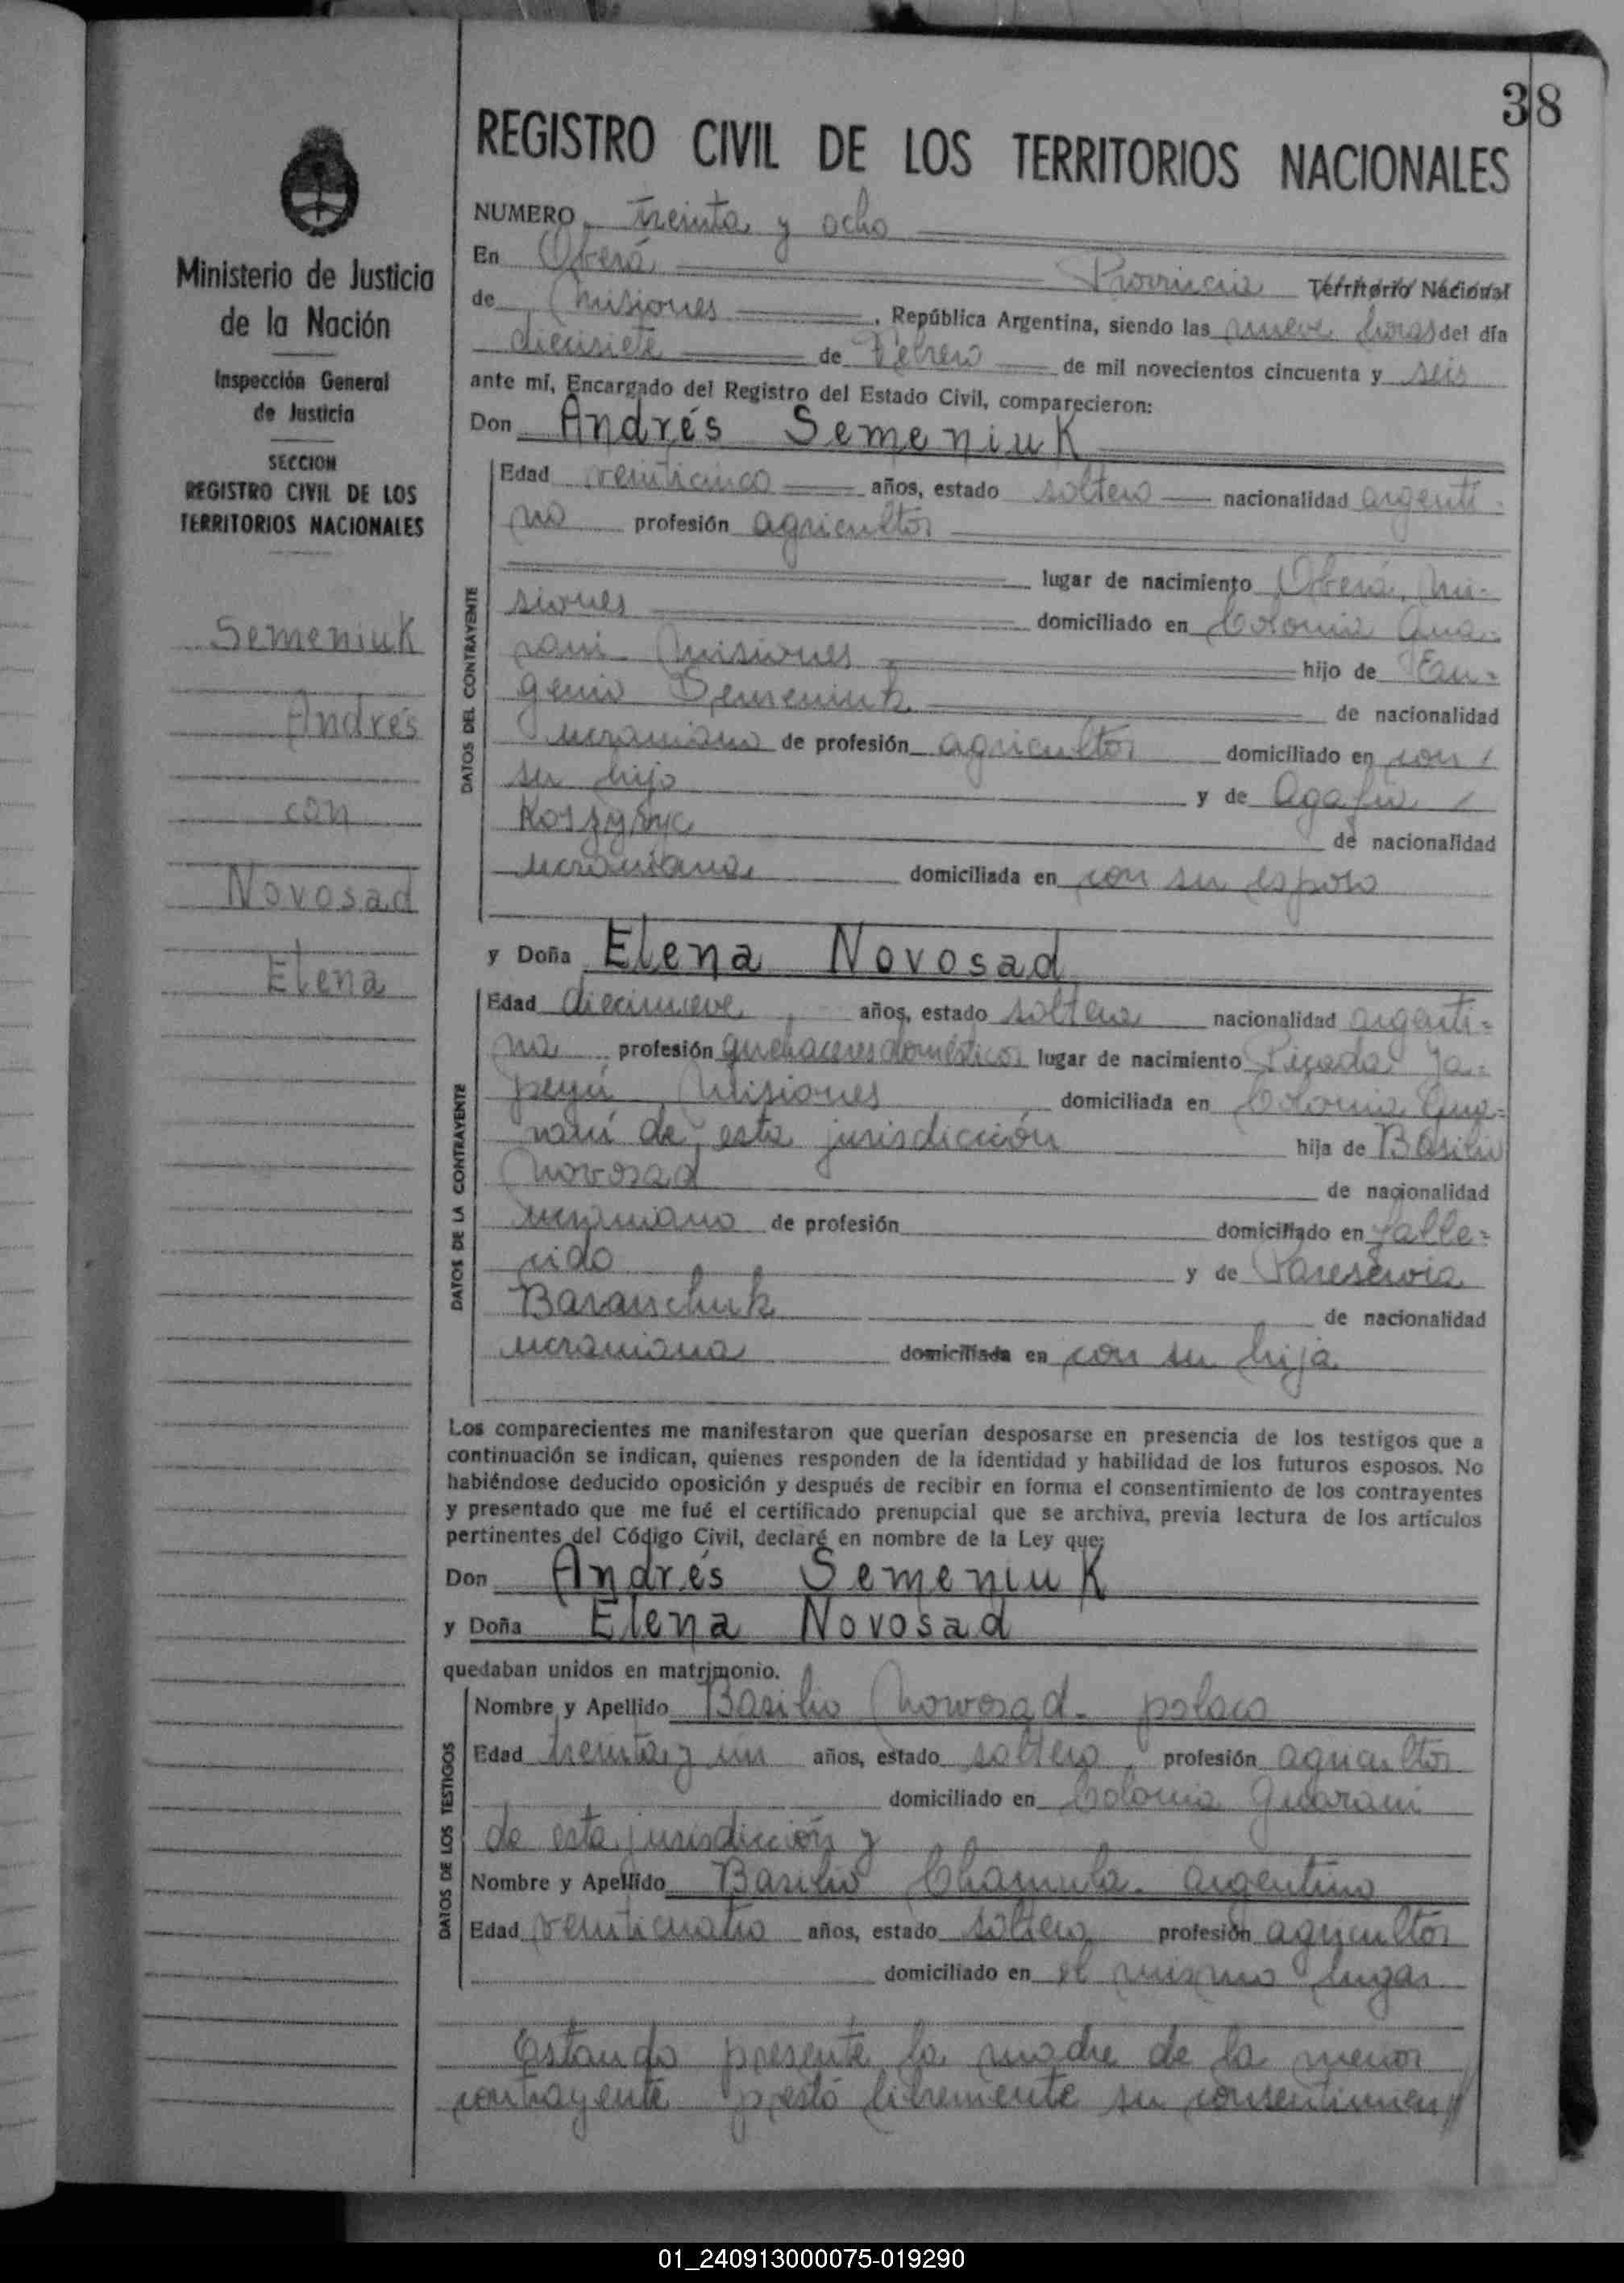 38
REGISTRO CIVIL DE LOS TERRITORIOS NACIONALES
Ministerio de Justicia
de la Nación
Inspección General
de Justicia
SECCION
REGISTRO CIVIL DE LOS
TERRITORIOS NACIONALES
Semeniuk
Andrés
con
Novosad
Elena
NUMERO treinta y ocho
En Oberá Provincia Territorio Nacional
de Misiones, República Argentina, siendo las nueve horas del día
diecisiete de Febrero de mil novecientos cincuenta y seis
ante mí, Encargado del Registro del Estado Civil, comparecieron:
Don Andrés Semeniuk
DATOS DEL CONTRAYENTE
Edad veinticinco años, estado soltero nacionalidad argenti-
no profesión agricultor
lugar de nacimiento Oberá, Mi-
siones domiciliado en Colonia Gua-
raní Misiones hijo de Eu-
genio Semeniuk de nacionalidad
ucraniano de profesión agricultor domiciliado en con
su hijo y de Agafia
de nacionalidad
ucraniana domiciliada en con su esposo
y Doña Elena Novosad
DATOS DE LA CONTRAYENTE
Edad diecinueve años, estado soltera nacionalidad argenti-
na profesión quehaceres domésticos lugar de nacimiento Picada Ya-
peyú Misiones domiciliada en Colonia Gua-
raní de esta jurisdicción hija de Basilio
Novosad de nacionalidad
ucraniano de profesión domiciliado en falle-
cido y de
Baranchuk de nacionalidad
ucraniana domiciliada en con su hija
Los comparecientes me manifestaron que querían desposarse en presencia de los testigos que a
continuación se indican, quienes responden de la identidad y habilidad de los futuros esposos. No
habiéndose deducido oposición y después de recibir en forma el consentimiento de los contrayentes
y presentado que me fué el certificado prenupcial que se archiva, previa lectura de los artículos
pertinentes del Código Civil, declaré en nombre de la Ley que:
Don Andrés Semeniuk
y Doña Elena Novosad
quedaban unidos en matrimonio.
DATOS DE LOS TESTIGOS
Nombre y Apellido Basilio Nowosad- polaco
Edad treinta y un años, estado soltero, profesión agricultor
domiciliado en Colonia Guaraní
de esta jurisdicción y
Nombre y Apellido Basilio Chamula- argentino
Edad veinticuatro años, estado soltero profesión agricultor
domiciliado en el mismo lugar
Estando presente la madre de la menor
contrayente prestó libremente su consentimien
01_240913000075-019290